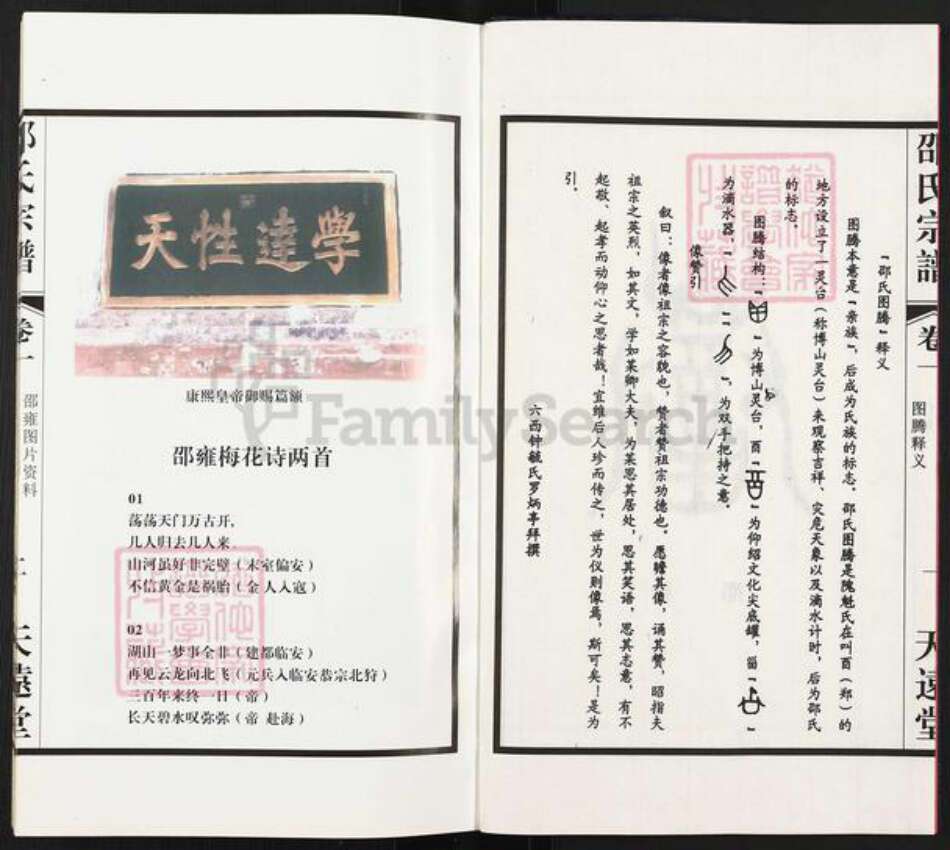 邵氏宗譜
卷一
图腾释义
一
天远堂
「邵氏图腾」释义
图腾本意是「亲族」，后成为氏族的标志。邵氏图腾是隗魁氏在叫酉（郑）的
地方设立了一灵台（称博山灵台）来观察吉祥、灾危天象以及滴水计时，后为邵氏
的标志。
图腾结构：「」为博山灵台，酉「」为仰绍文化尖底罐，
为滴水器，「」「」，为双手把持之意。
像赞引
叙曰：像者像祖宗之容貌也，赞者赞祖宗功德也。愿瞻其像，诵其赞，昭指夫
祖宗之英烈，如某文，学如某卿大夫，为某思其居处，思其笑语，思其志意，有不
起敬、起孝而动仰心之思者哉！宜维后人珍而传之，世为仪则像焉，斯可矣！是为
引。
六西钟毓氏罗炳亭拜撰
邵氏宗譜
卷一
邵雍图片资料
天遠堂
天性達學
康熙皇帝御赐篇额
邵雍梅花诗两首
01
荡荡天门万古开，
几人归去几人来。
山河虽好非完璧（末室偏安）
不信黄金是祸胎（金人入寇）
02
湖山一梦事全非（建都临安）
再见云龙向北飞（元兵入临安恭宗北狩）
三百年来终一日（帝）
长天碧水叹弥弥（帝 赴海）
FamilySearch